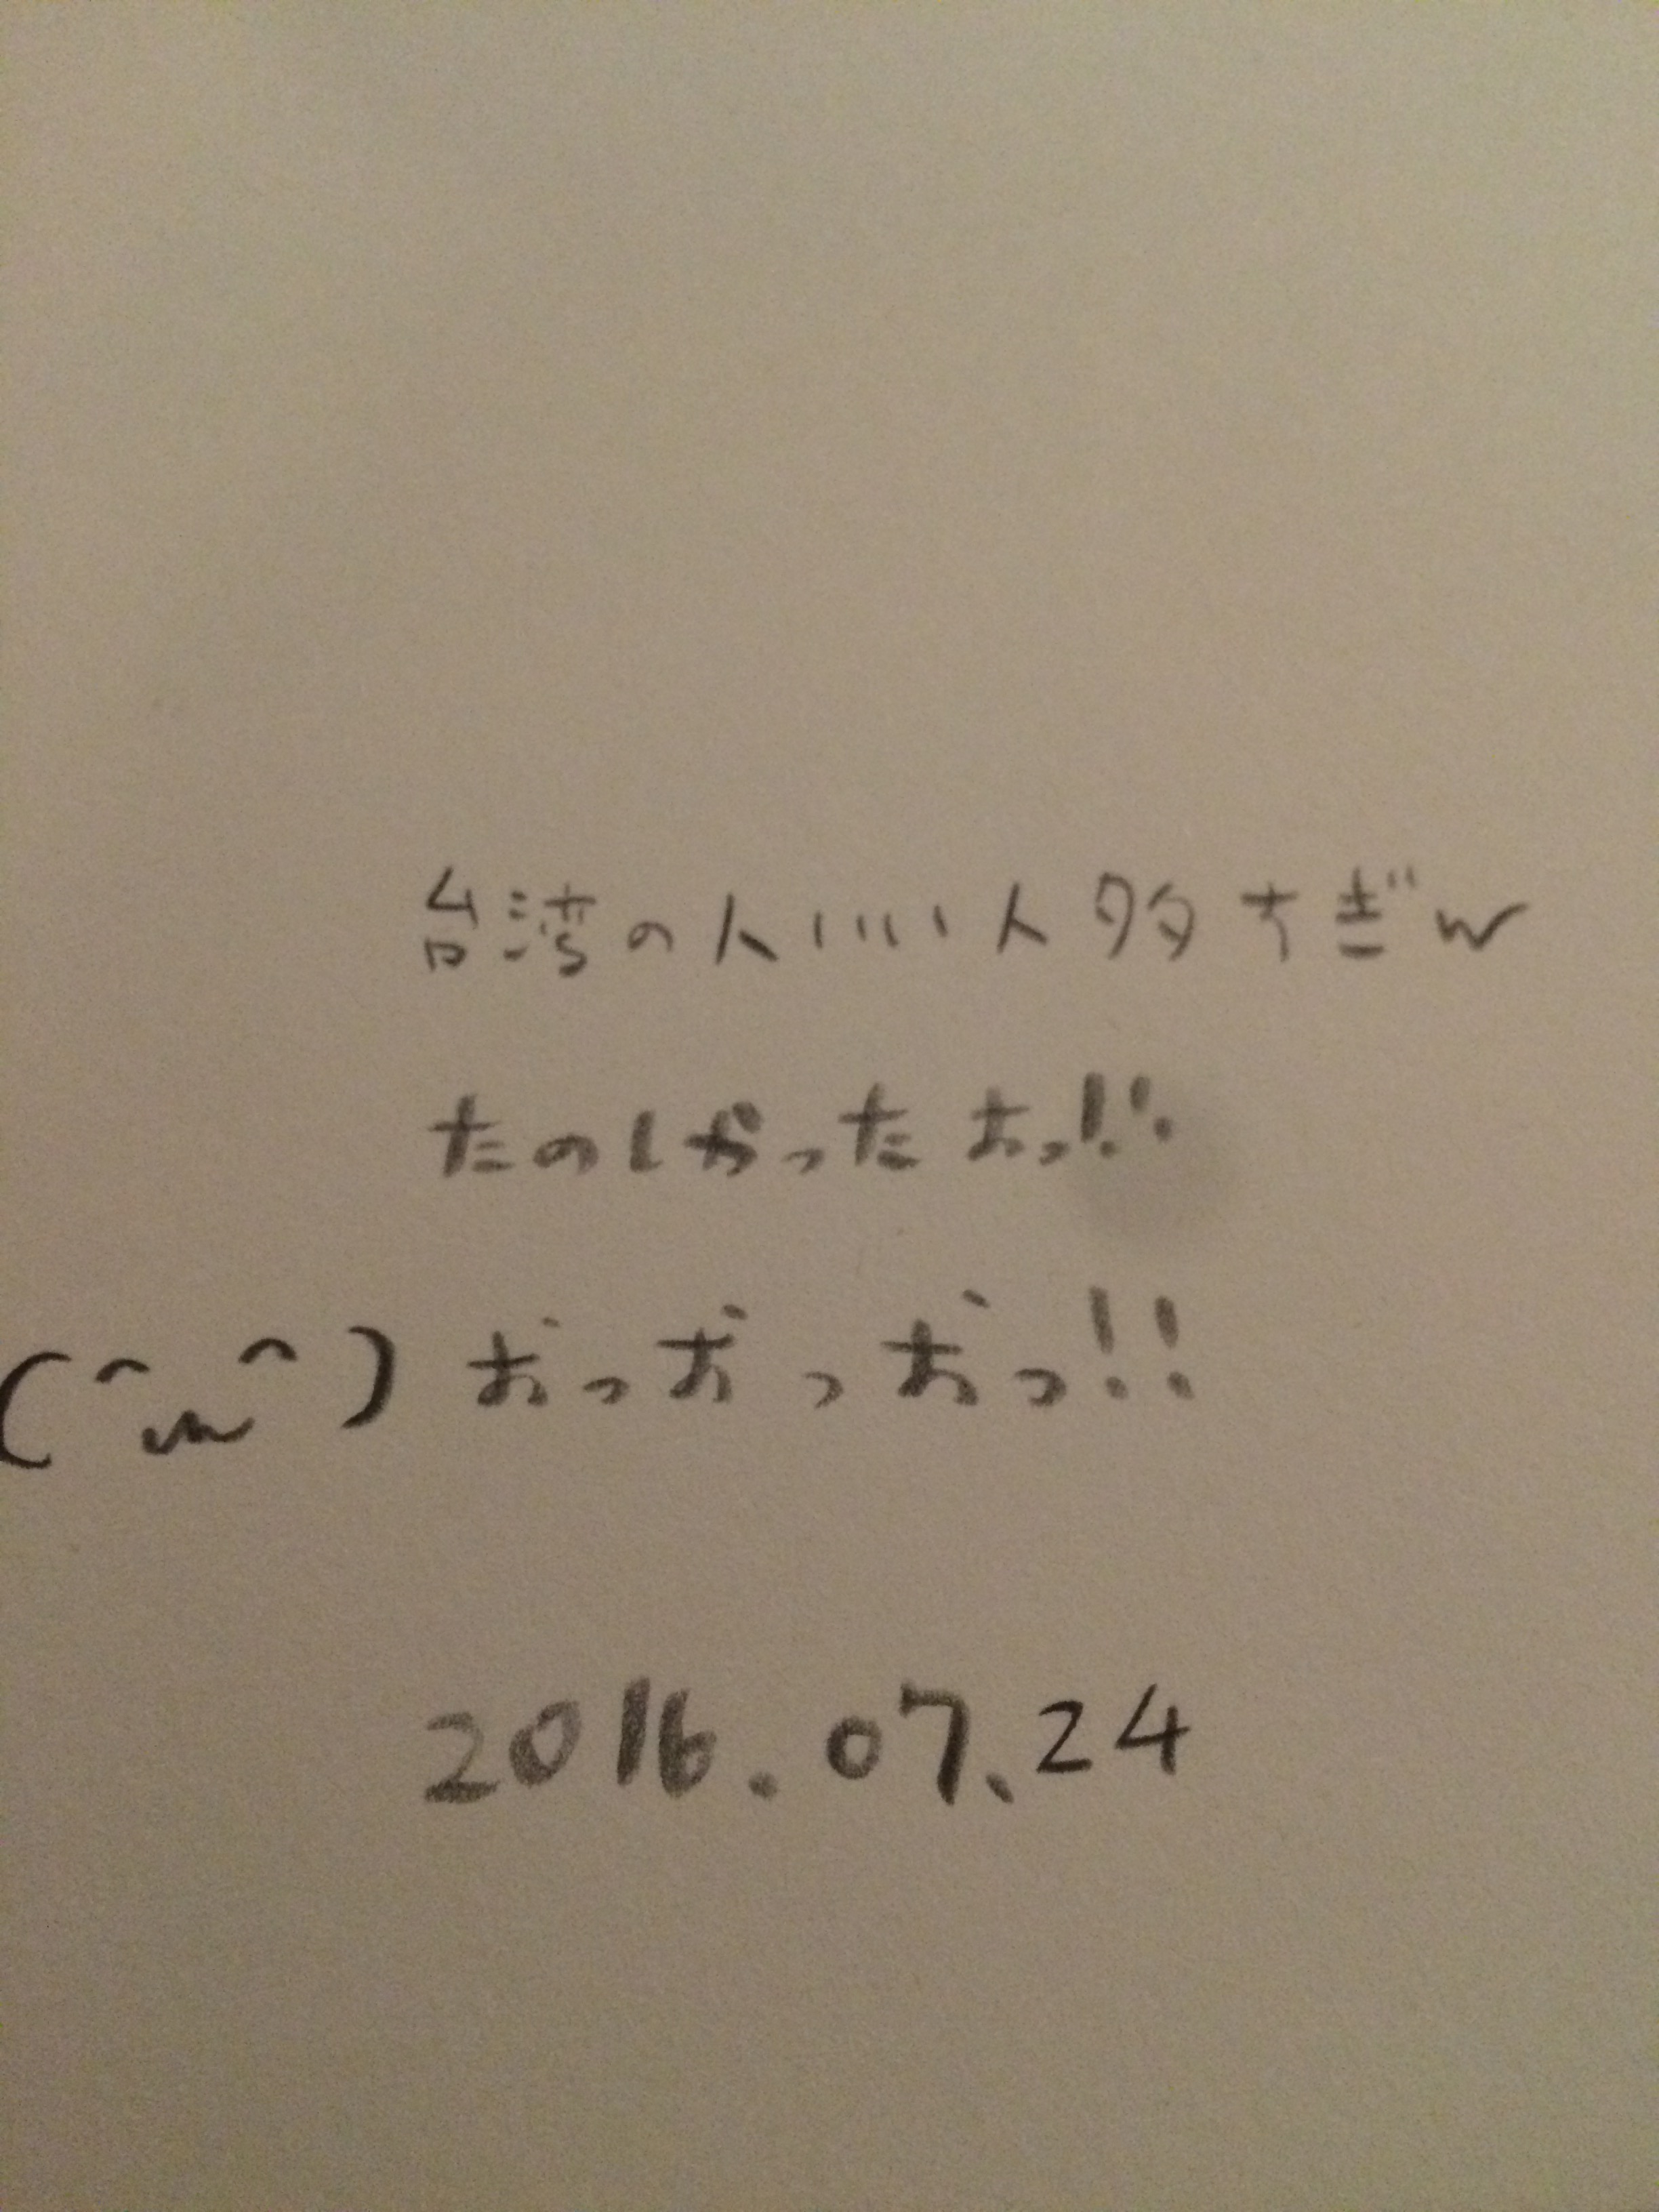 台湾の人いい人多すぎw
たのしかったおっ!!
(^ω^)おっおっおっ!!
2016.07.24